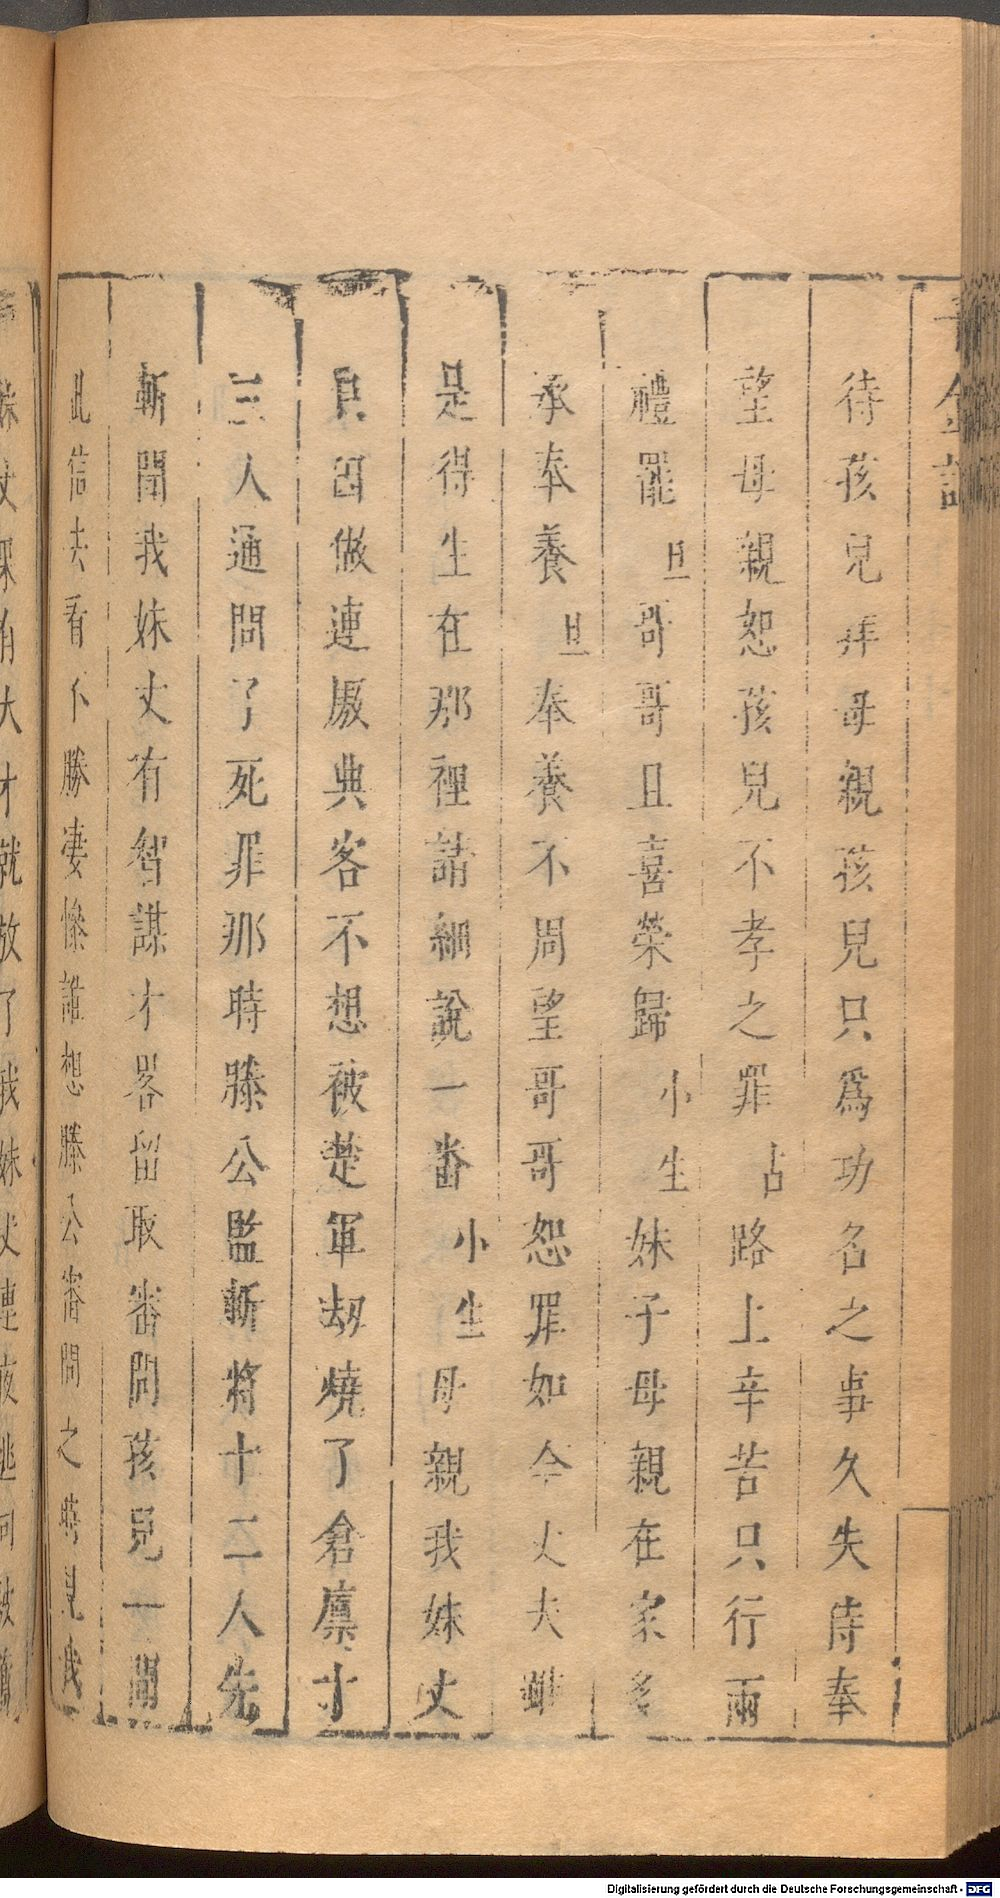 千金記
待孩兒拜母親孩兒只爲功名之事久失侍奉
望母親恕孩兒不孝之罪占路上辛苦只行兩
禮罷旦哥哥且喜榮歸小生妹子母親在家多
承奉養旦奉養不周望哥哥恕罪如今丈夫雖
是得生在那裡請細說一番小生母親我妹丈
因做連廒典客不想被楚軍刼燒了倉廪十
三人通問了死罪那時滕公監斬將十二人先
斬聞我妹丈有智謀才畧留取審問孩兒一聞
此信去看不勝凄慘誰想滕公審問之時見我
妹丈果有大才就放了我妹丈連夜逃何
Digitalisierung gefördert durch die Deutsche Forschungsgemeinschaft - DFG